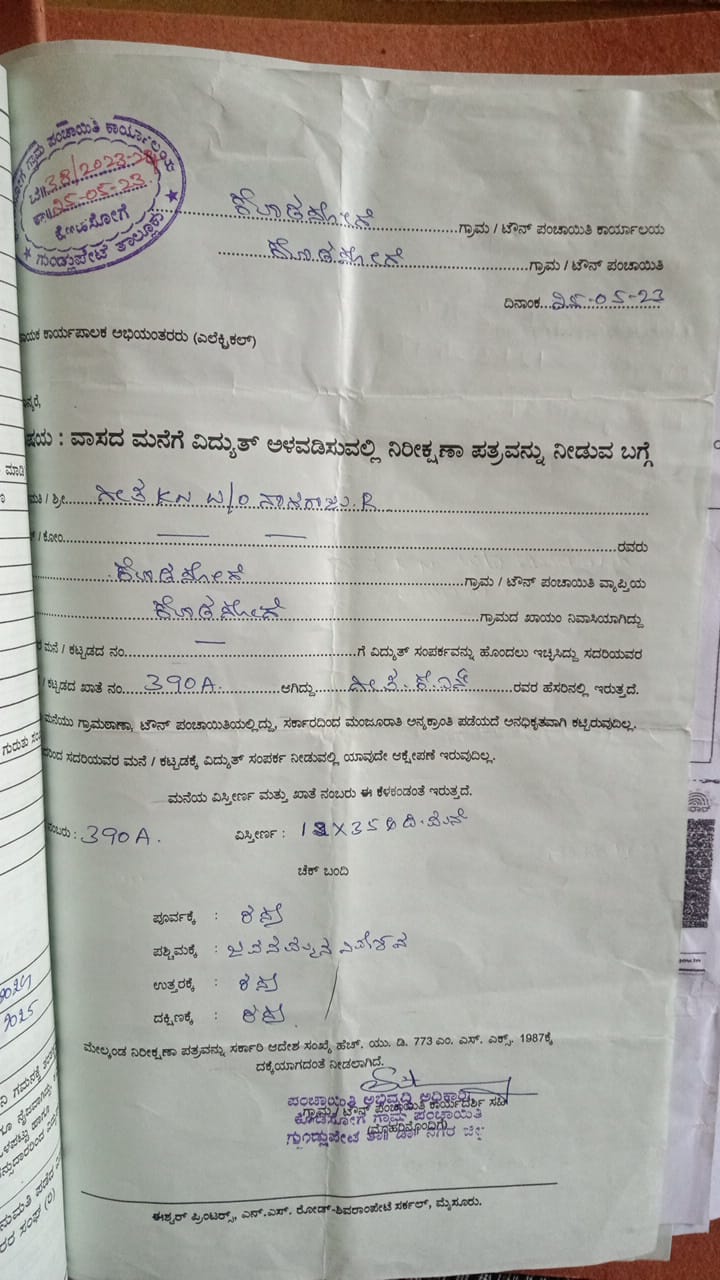 ಗ್ರಾಮ ಪಂಚಾಯಿತಿ ಕಾರ್ಯಾಲಯ
38/2023-24
25-05-23
ಕೊಡಸೋಗೆ
ಗುಂಡ್ಲುಪೇಟೆ ತಾಲ್ಲೂಕು
ಕೊಡಸೋಗೆ ಗ್ರಾಮ / ಟೌನ್ ಪಂಚಾಯಿತಿ ಕಾರ್ಯಾಲಯ
ಕೊಡಸೋಗೆ ಗ್ರಾಮ / ಟೌನ್ ಪಂಚಾಯಿತಿ
ದಿನಾಂಕ 25-05-23
ಯಕ ಕಾರ್ಯಪಾಲಕ ಅಭಿಯಂತರರು (ಎಲೆಕ್ಟ್ರಿಕಲ್)
ನ್ಯರೆ,
ಷಯ : ವಾಸದ ಮನೆಗೆ ವಿದ್ಯುತ್ ಅಳವಡಿಸುವಲ್ಲಿ ನಿರೀಕ್ಷಣಾ ಪತ್ರವನ್ನು ನೀಡುವ ಬಗ್ಗೆ
ಮತಿ / ಶ್ರೀ ಗೀತ KN W/O ನಾಗರಾಜು. R
/ ಕೋಂ ರವರು
ಕೊಡಸೋಗೆ ಗ್ರಾಮ / ಟೌನ್ ಪಂಚಾಯಿತಿ ವ್ಯಾಪ್ತಿಯ
ಕೊಡಸೋಗೆ ಗ್ರಾಮದ ಖಾಯಂ ನಿವಾಸಿಯಾಗಿದ್ದು
ರ ಮನೆ / ಕಟ್ಟಡದ ನಂ. — ಗೆ ವಿದ್ಯುತ್ ಸಂಪರ್ಕವನ್ನು ಹೊಂದಲು ಇಚ್ಛಿಸಿದ್ದು ಸದರಿಯವರ
/ ಕಟ್ಟಡದ ಖಾತೆ ನಂ. 390A. ಆಗಿದ್ದು ಗೀತ. ಕೆ.ಎನ್ ರವರ ಹೆಸರಿನಲ್ಲಿ ಇರುತ್ತದೆ.
ಮನೆಯು ಗ್ರಾಮಠಾಣಾ, ಟೌನ್ ಪಂಚಾಯಿತಿಯಲ್ಲಿದ್ದು, ಸರ್ಕಾರದಿಂದ ಮಂಜೂರಾತಿ ಅನ್ಯಕ್ರಾಂತಿ ಪಡೆಯದೆ ಅನಧಿಕೃತವಾಗಿ ಕಟ್ಟಿರುವುದಿಲ್ಲ.
ರಿಂದ ಸದರಿಯವರ ಮನೆ / ಕಟ್ಟಡಕ್ಕೆ ವಿದ್ಯುತ್ ಸಂಪರ್ಕ ನೀಡುವಲ್ಲಿ ಯಾವುದೇ ಆಕ್ಷೇಪಣೆ ಇರುವುದಿಲ್ಲ.
ಮನೆಯ ವಿಸ್ತೀರ್ಣ ಮತ್ತು ಖಾತೆ ನಂಬರು ಈ ಕೆಳಕಂಡಂತೆ ಇರುತ್ತದೆ.
ನಂಬರು : 390A. ವಿಸ್ತೀರ್ಣ :
ಚೆಕ್ ಬಂದಿ
ಪೂರ್ವಕ್ಕೆ : ರಸ್ತೆ
ಪಶ್ಚಿಮಕ್ಕೆ : ನಿವೇಶನ
ಉತ್ತರಕ್ಕೆ : ರಸ್ತೆ
ದಕ್ಷಿಣಕ್ಕೆ : ರಸ್ತೆ
ಮೇಲ್ಕಂಡ ನಿರೀಕ್ಷಣಾ ಪತ್ರವನ್ನು ಸರ್ಕಾರಿ ಆದೇಶ ಸಂಖ್ಯೆ ಹೆಚ್. ಯು. ಡಿ. 773 ಎಂ. ಎಸ್. ಎಕ್ಸ್. 1987ಕ್ಕೆ
ದಕ್ಕೆಯಾಗದಂತೆ ನೀಡಲಾಗಿದೆ.
ಪಂಚಾಯಿತಿ ಅಭಿವೃದ್ಧಿ ಅಧಿಕಾರಿ
ಗ್ರಾಮ / ಟೌನ್ ಪಂಚಾಯಿತಿ ಕಾರ್ಯದರ್ಶಿ ಸಹಿ
ಕೊಡಸೋಗೆ ಗ್ರಾಮ ಪಂಚಾಯಿತಿ
(ಮೊಹರಿನೊಂದಿಗೆ)
ಗುಂಡ್ಲುಪೇಟೆ ತಾ॥ ಚಾ॥ ನಗರ ಜಿಲ್ಲೆ
ಈಶ್ವರ್ ಪ್ರಿಂಟರ್ಸ್, ಎನ್.ಎಸ್. ರೋಡ್-ಶಿವರಾಂಪೇಟೆ ಸರ್ಕಲ್, ಮೈಸೂರು.